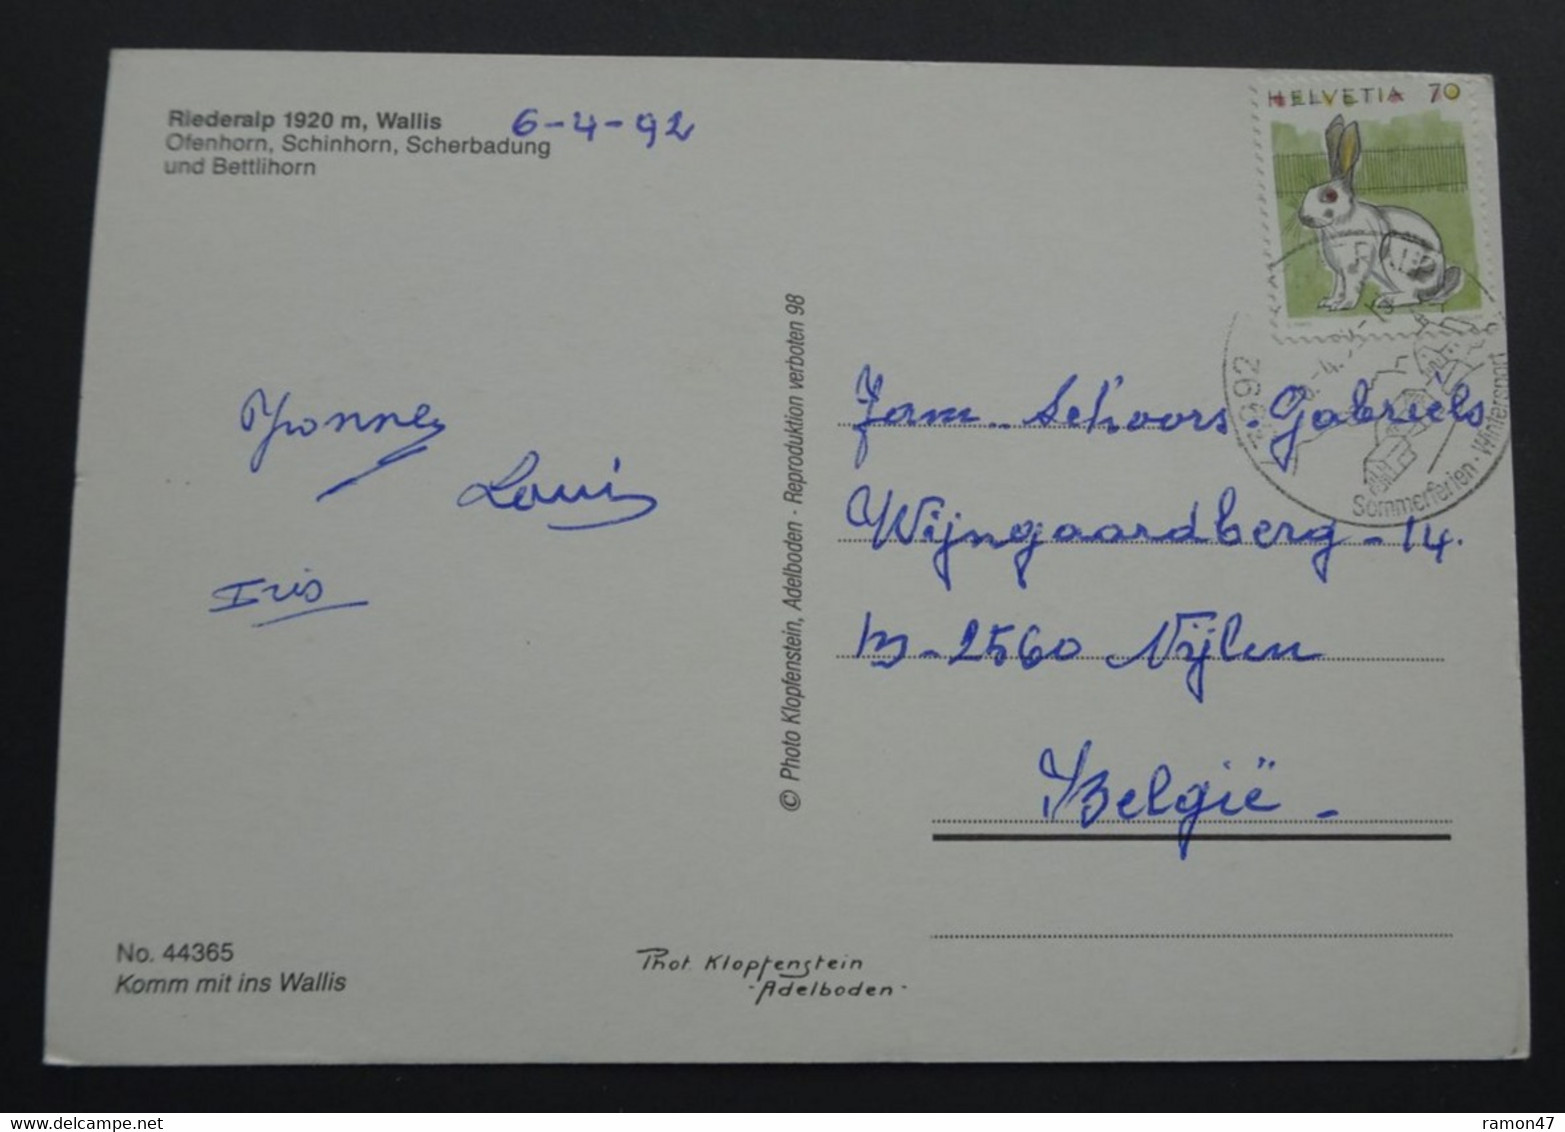 Riederalp 1920 m, Wallis
Ofenhorn, Schinhorn, Scherbadung
und Bettlihorn
6-4-92
HELVETIA 70
Sommerferien · Wintersport
Yvonne
Louis
Iris
© Photo Klopfenstein, Adelboden - Reproduktion verboten 98
Fam. Schoors-Gabriels
Wijngaardberg - 14.
B-2560 Nijlen
België -
No. 44365
Komm mit ins Wallis
Phot. Klopfenstein
- Adelboden -
ramon47